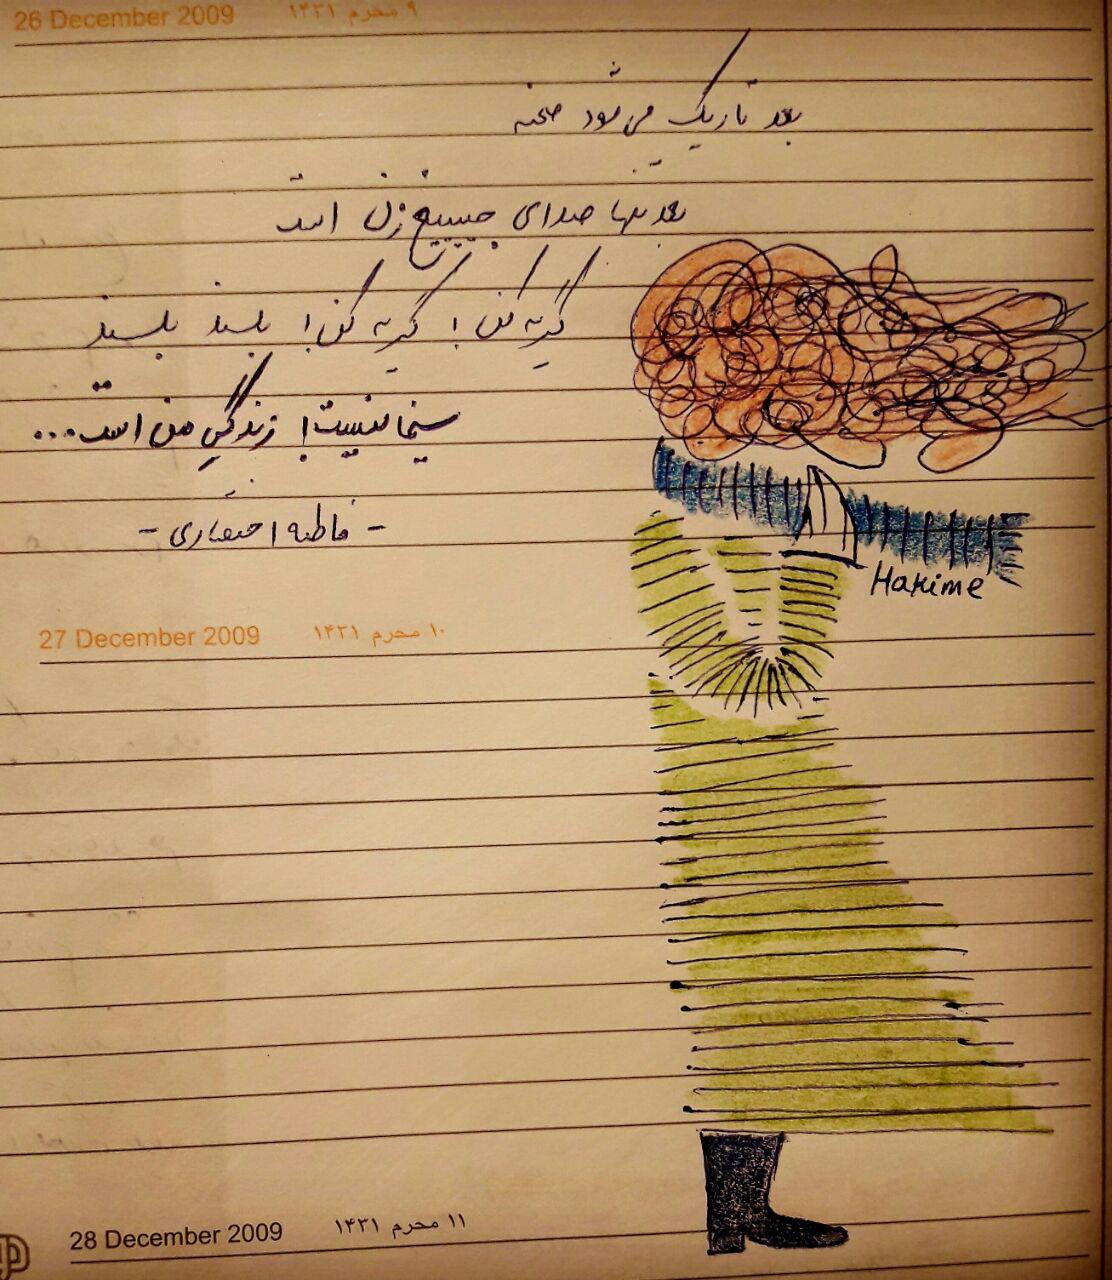 26 December 2009 ۹ محرم ۱۴۳۱
بعد تاریک می شود صحنه
بعد تنها صدای جیییغ زن است
گریه کن! گریه کن! بلند بلند
سینما نیست! زندگیِ من است...
- فاطمه اختصاری -
Hakime
27 December 2009 ۱۰ محرم ۱۴۳۱
28 December 2009 ۱۱ محرم ۱۴۳۱